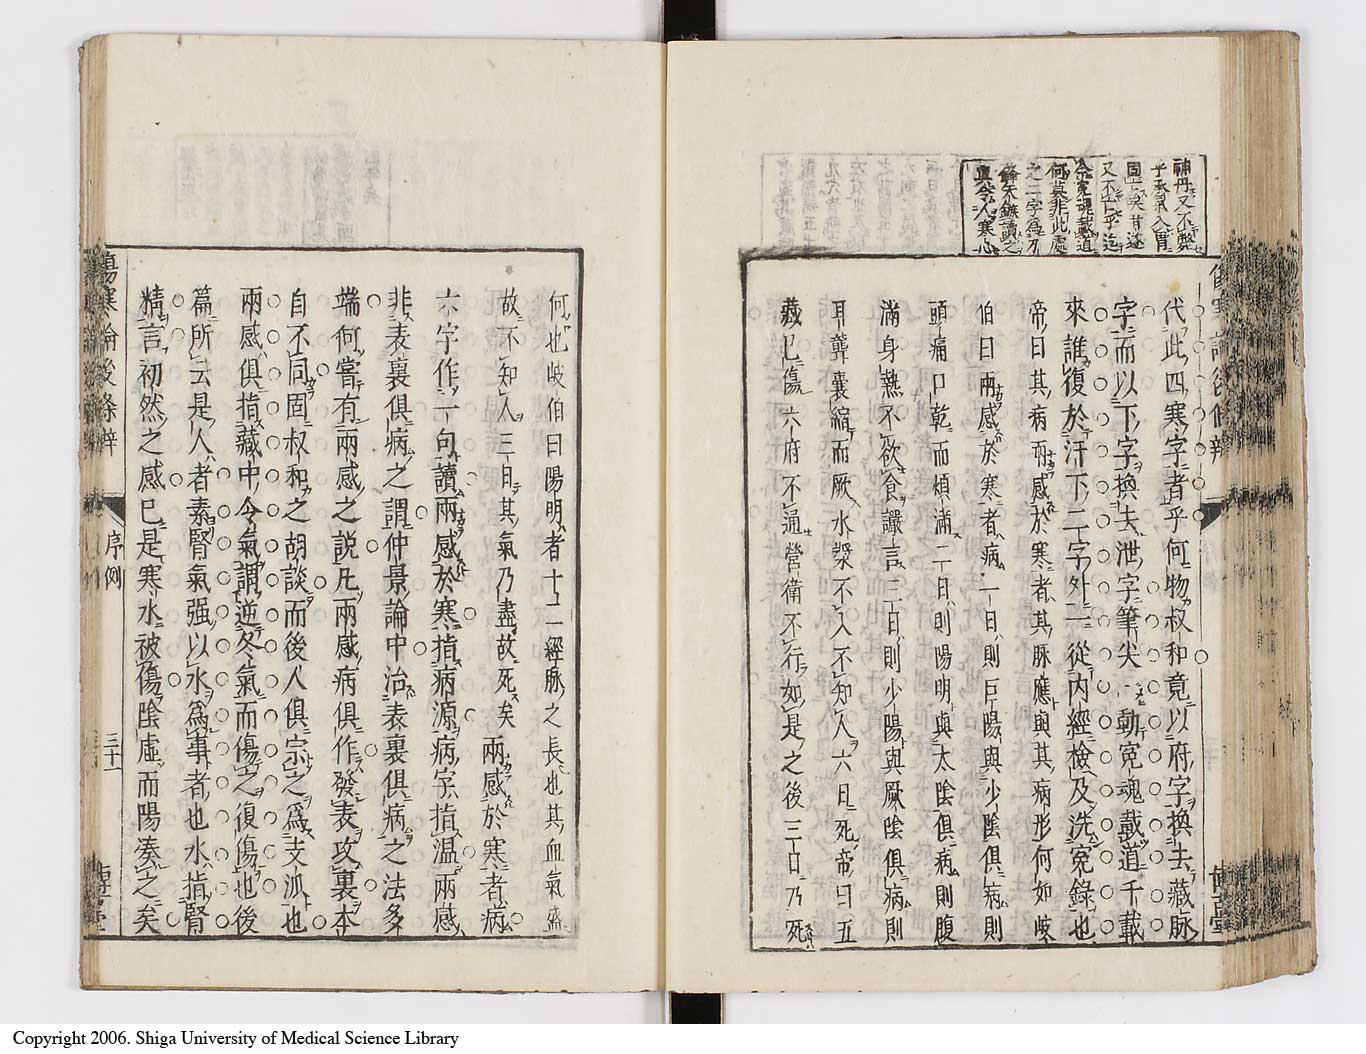 神丹又不斃
乎承氣入胃
又不亡乎迄
今寃魂載道
何莫非此處
之二字爲刀
鋒矢鏃讀之
眞令人寒心
代此四寒字者乎何物叔和竟以府字換去藏脉
字而以下字換去泄字筆尖一動寃魂載道千載
來誰復於汗下二字外一從內經檢及洗寃錄也
帝曰其病兩感於寒者其脉應與其病形何如岐
伯曰兩感於寒者病一日則巨陽與少陰俱病則
頭痛口乾而煩滿二日則陽明與太陰俱病則腹
滿身熱不欲食讝言三日則少陽與厥陰俱病則
耳聾囊縮而厥水漿不入不知人六日死帝曰五
藏已傷六府不通營衛不行如是之後三日乃死
何也岐伯曰陽明者十二經脉之長也其血氣盛
故不知人三日其氣乃盡故死矣　兩感於寒者病
六字作一句讀兩感於寒指病源病字指溫兩感
非表裏俱病之謂仲景論中治表裏俱病之法多
端何嘗有兩感之說凡兩感病俱作發表攻裏本
自不同固叔和之胡談而後人俱宗之爲支派也
兩感俱指藏中今氣謂逆冬氣而傷之復傷也後
篇所云是人者素腎氣强以水爲事者也水指腎
精言初然之感已是寒水被傷陰虛而陽湊之矣
傷寒論後條辨
序例
三十一
博古堂
Copyright 2006. Shiga University of Medical Science Library